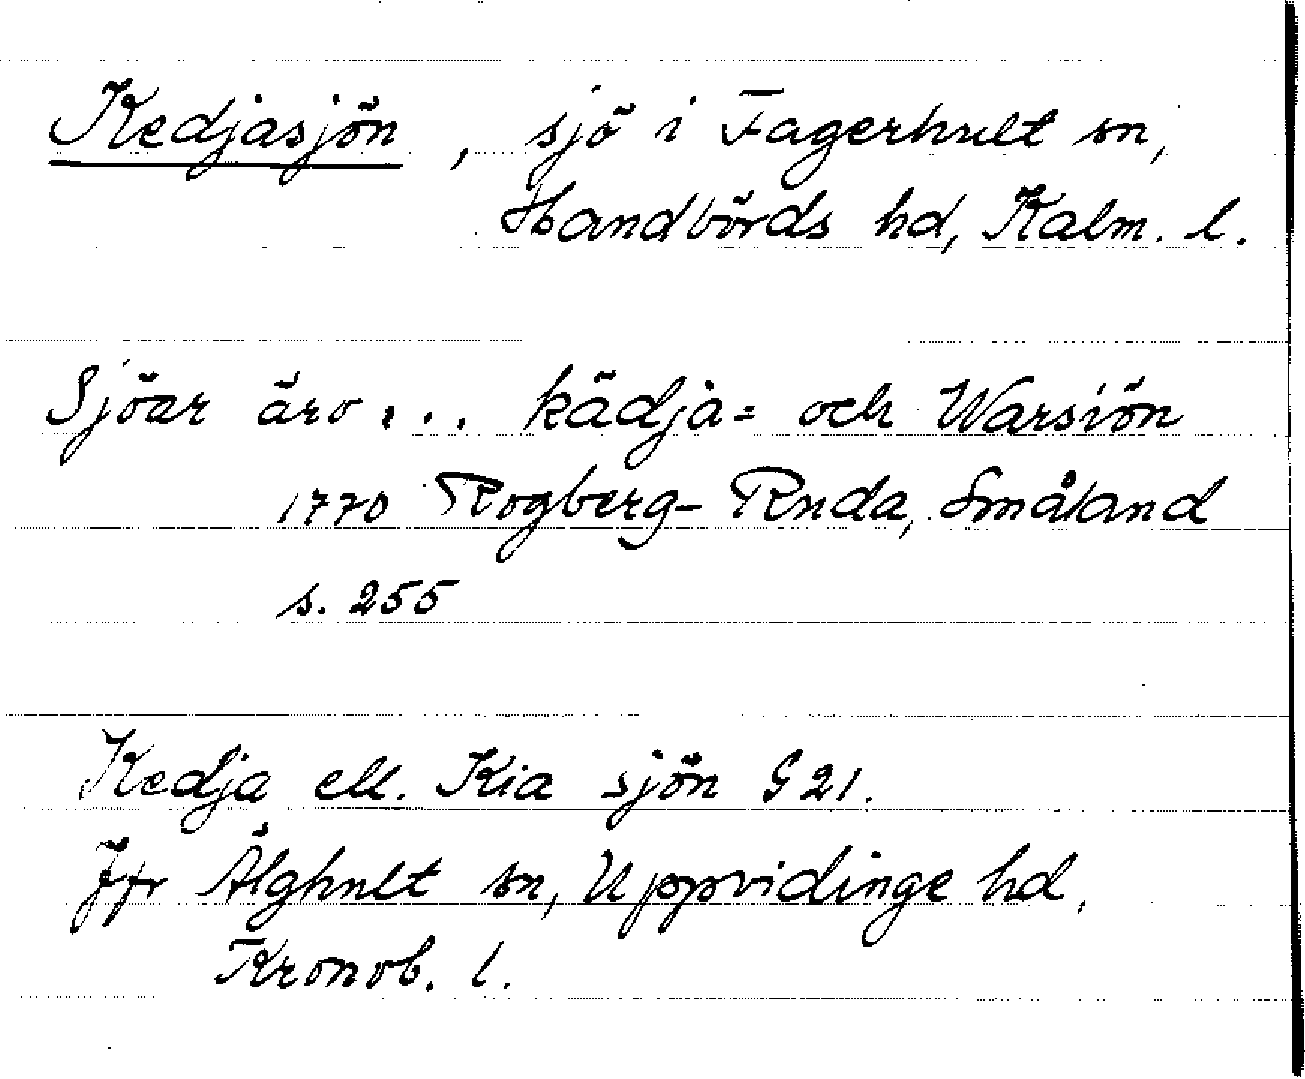 Kedjasjön, sjö i Fagerhult sn,
Handbörds hd, Kalm. l.
Sjöar äro... kädja= och Warsiön
1770 Rogberg-Ruda, Småland
s. 255
Kedja ell. Kia sjön G 21.
Jfr Älghult sn, Uppvidinge hd,
Kronob. l.